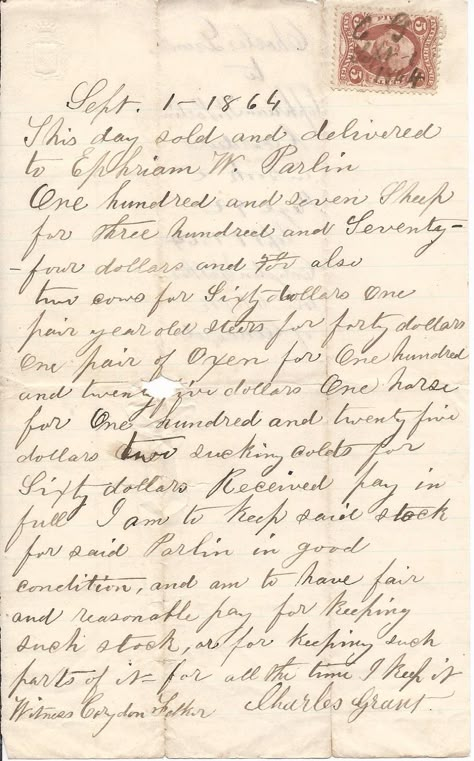 Sept. 1 - 1864
This day sold and delivered
to Ephriam W. Parlin
One hundred and seven Sheep
for three hundred and Seventy-
-four dollars and also
two cows for Sixty dollars One
pair year old steers for forty dollars
One pair of Oxen for One hundred
and twenty five dollars One horse
for One hundred and twenty five
dollars two sucking colts for
Sixty dollars Received pay in
full I am to keep said stock
for said Parlin in good
condition, and am to have fair
and reasonable pay for keeping
such stock, or for keeping such
parts of it - for all the time I keep it
Witness Corydon Felker Charles Grant.
5
5